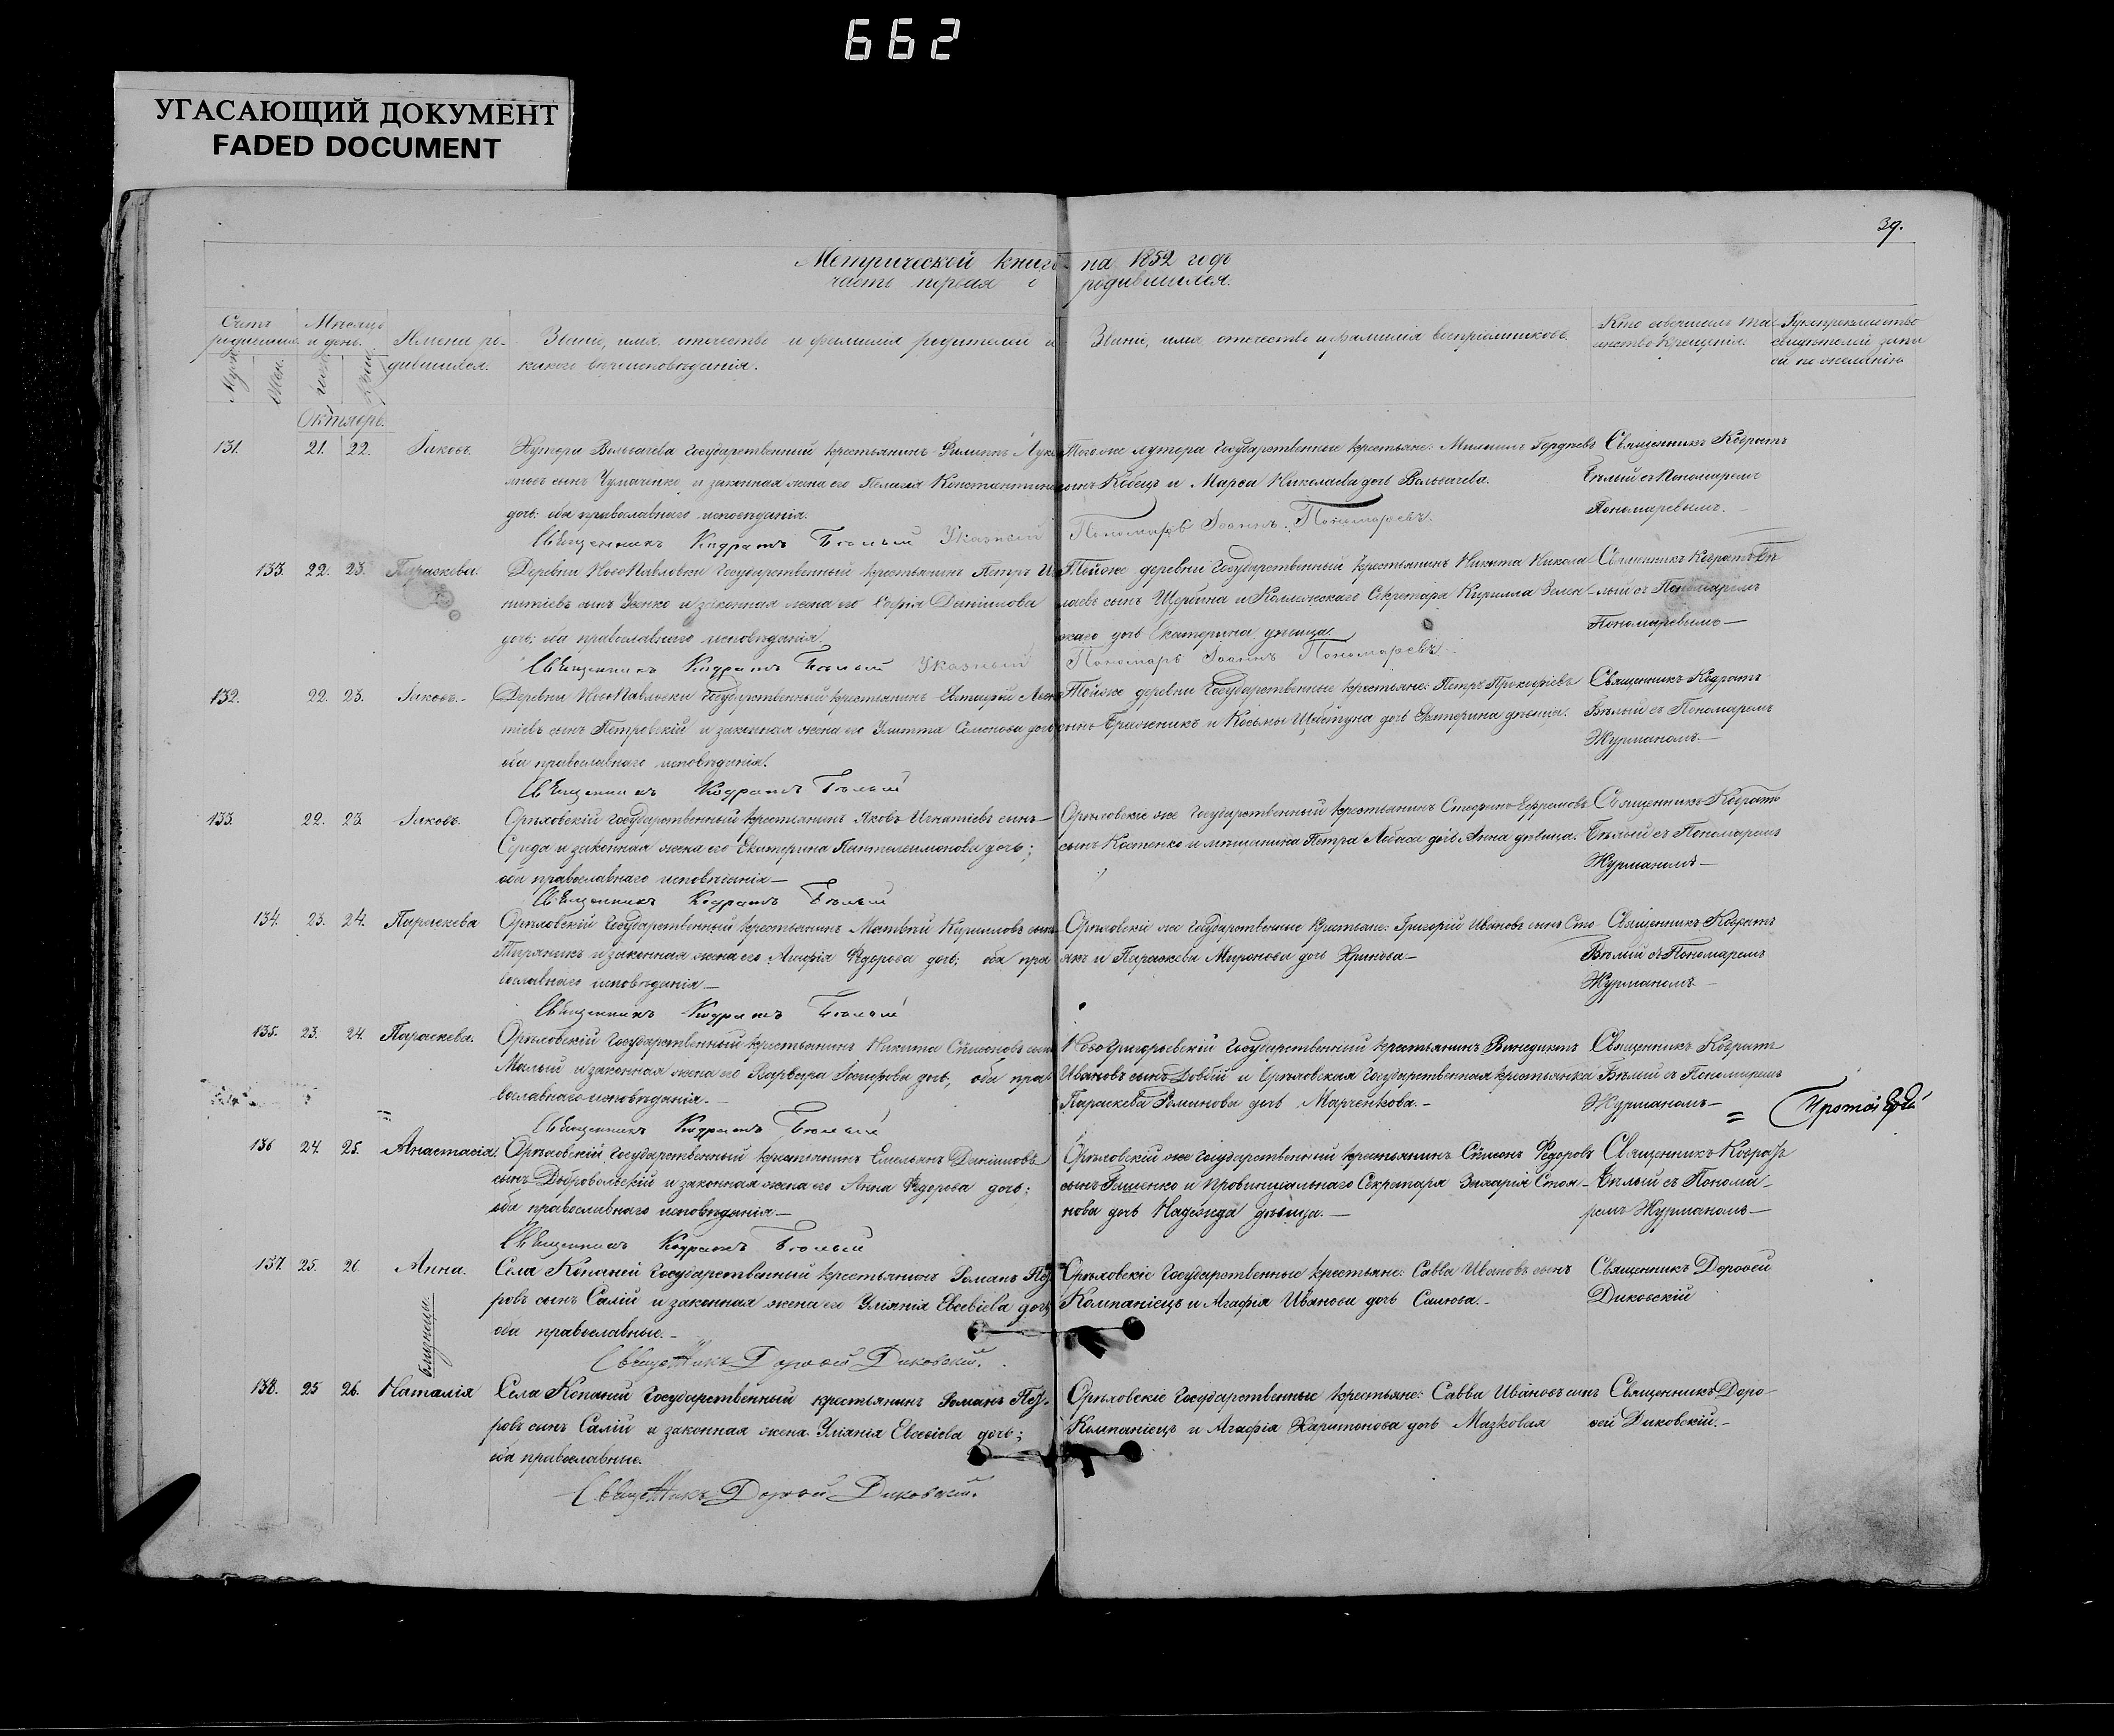 662
УГАСАЮЩИЙ ДОКУМЕНТ
FADED DOCUMENT
39.
Метрической книги на 1852 годъ
часть первая о родившихся.
Счетъ родившихся.
Муж.
Жен.
Мѣсяцъ и день.
Имена родившихся.
Званіе, имя, отчество и фамилія родителей и
какого вѣроисповѣданія.
Званіе, имя, отчество и фамилія воспріемниковъ.
Кто совершалъ таинство крещенія.
Рукоприкладство
свидѣтелей записи по желанію.
Октябрь.
131. 21. 22. Іаковъ.
Хутора государственный крестьянинъ Филиппъ
сынъ Чумаченко и законная жена его Пелагія Константинова
дочь: оба православнаго исповѣданія.
Тогоже хутора государственные крестьяне: Михаилъ Гордѣевъ
сынъ Кобецъ и Марѳа Николаева дочь
Священникъ Кодратъ
Бѣлый съ Пономаремъ
Пономаревымъ.
Священникъ Кодратъ Бѣлый Указный Пономарь Іоаннъ Пономаревъ.
133. 22. 23. Параскева.
Деревни НовоПавловки государственный крестьянинъ Петръ
сынъ Усенко и законная жена его Софія Даніилова
дочь: оба православнаго исповѣданія.
Тойже деревни государственный крестьянинъ Никита Никола
аевъ сынъ Щербина и Коллежскаго Секретаря Кирилла
дочь Екатерина дѣвица.
Священникъ Кодратъ Бѣ
лый съ Пономаремъ
Пономаревымъ—
Священникъ Кодратъ Бѣлый Указный Пономарь Іоаннъ Пономаревъ
132. 22. 23. Іаковъ.
Деревни НовоПавловки государственный крестьянинъ Евстафій
тіевъ сынъ Петровскій и законная жена его Улитта Семенова дочь
оба православнаго исповѣданія.
Тойже деревни государственные крестьяне: Петръ Прокофіевъ
сынъ Бражникъ и Косьмы дочь Екатерина дѣвица.
Священникъ Кодратъ
Бѣлый съ Пономаремъ
Журманомъ.—
Священникъ Кодратъ Бѣлый
133. 22. 23. Іаковъ.
Орѣховскій государственный крестьянинъ Яковъ Игнатіевъ сынъ—
Середа и законная жена его Екатерина Пантелеимонова дочь;
оба православнаго исповѣданія—
Орѣховскіе же государственный крестьянинъ Стефанъ Ефремовъ
сынъ Костенко и мѣщанина Петра дочь Анна дѣвица.
Священникъ Кодратъ
Бѣлый съ Пономаремъ
Журманомъ—
Священникъ Кодратъ Бѣлый
134. 23. 24. Параскева
Орѣховскій государственный крестьянинъ Матвѣй Кирилловъ сынъ
и законная жена его Агафія Ѳедорова дочь; оба пра
вославнаго исповѣданія—
Орѣховскіе же государственные крестьяне: Григорій Ивановъ сынъ Сто
якъ и Параскева Миронова дочь
Священникъ Кодратъ
Бѣлый съ Пономаремъ
Журманомъ
Священникъ Кодратъ Бѣлый
135. 23. 24. Параскева.
Орѣховскій государственный крестьянинъ Никита Сѵмеоновъ сынъ
Малый и законная жена его Варвара Іосифова дочь, оба пра
вославнаго исповѣданія.—
НовоГригорьевскій государственный крестьянинъ Винедиктъ
Ивановъ сынъ Довбій и Орѣховская государственная крестьянка
Параскева дочь Марченкова.—
Священникъ Кодратъ
Бѣлый съ Пономаремъ
Журманомъ—
Священникъ Кодратъ Бѣлый
136 24. 25. Анастасія.
Орѣховскій государственный крестьянинъ Емельянъ Даніиловъ
сынъ Добровольскій и законная жена его Анна Ѳедорова дочь;
оба православнаго исповѣданія—
Орѣховскій же государственный крестьянинъ Сѵмеонъ Ѳедоровъ
сынъ и Провинціальнаго Секретаря Захарія Стоя—
нова дочь Надежда дѣвица.—
Священникъ Кодратъ
Бѣлый съ Понома—
ремъ Журманомъ—
Священникъ Кодратъ Бѣлый
137. 25. 26. Анна.
близнецы.
Села Копаней государственный крестьянинъ Романъ Пет
ровъ сынъ Салій и законная жена его Уліянія Евсевіева дочь
оба православные.—
Орѣховскіе государственные крестьяне: Савва Ивановъ сынъ
Компаніецъ и Агафія Иванова дочь
Священникъ Дороѳей
Диковскій
Священникъ Дороѳей Диковскій.
138. 25 26. Наталія
Села Копаней государственный крестьянинъ Романъ Пет—
ровъ сынъ Салій и законная жена Уліянія Евсевіева дочь;
оба православные.
Орѣховскіе государственные крестьяне: Савва Ивановъ сынъ
Компаніецъ и Агафія Харитонова дочь Мазковая
Священникъ Доро—
ѳей Диковскій.—
Священникъ Дороѳей Диковскій.